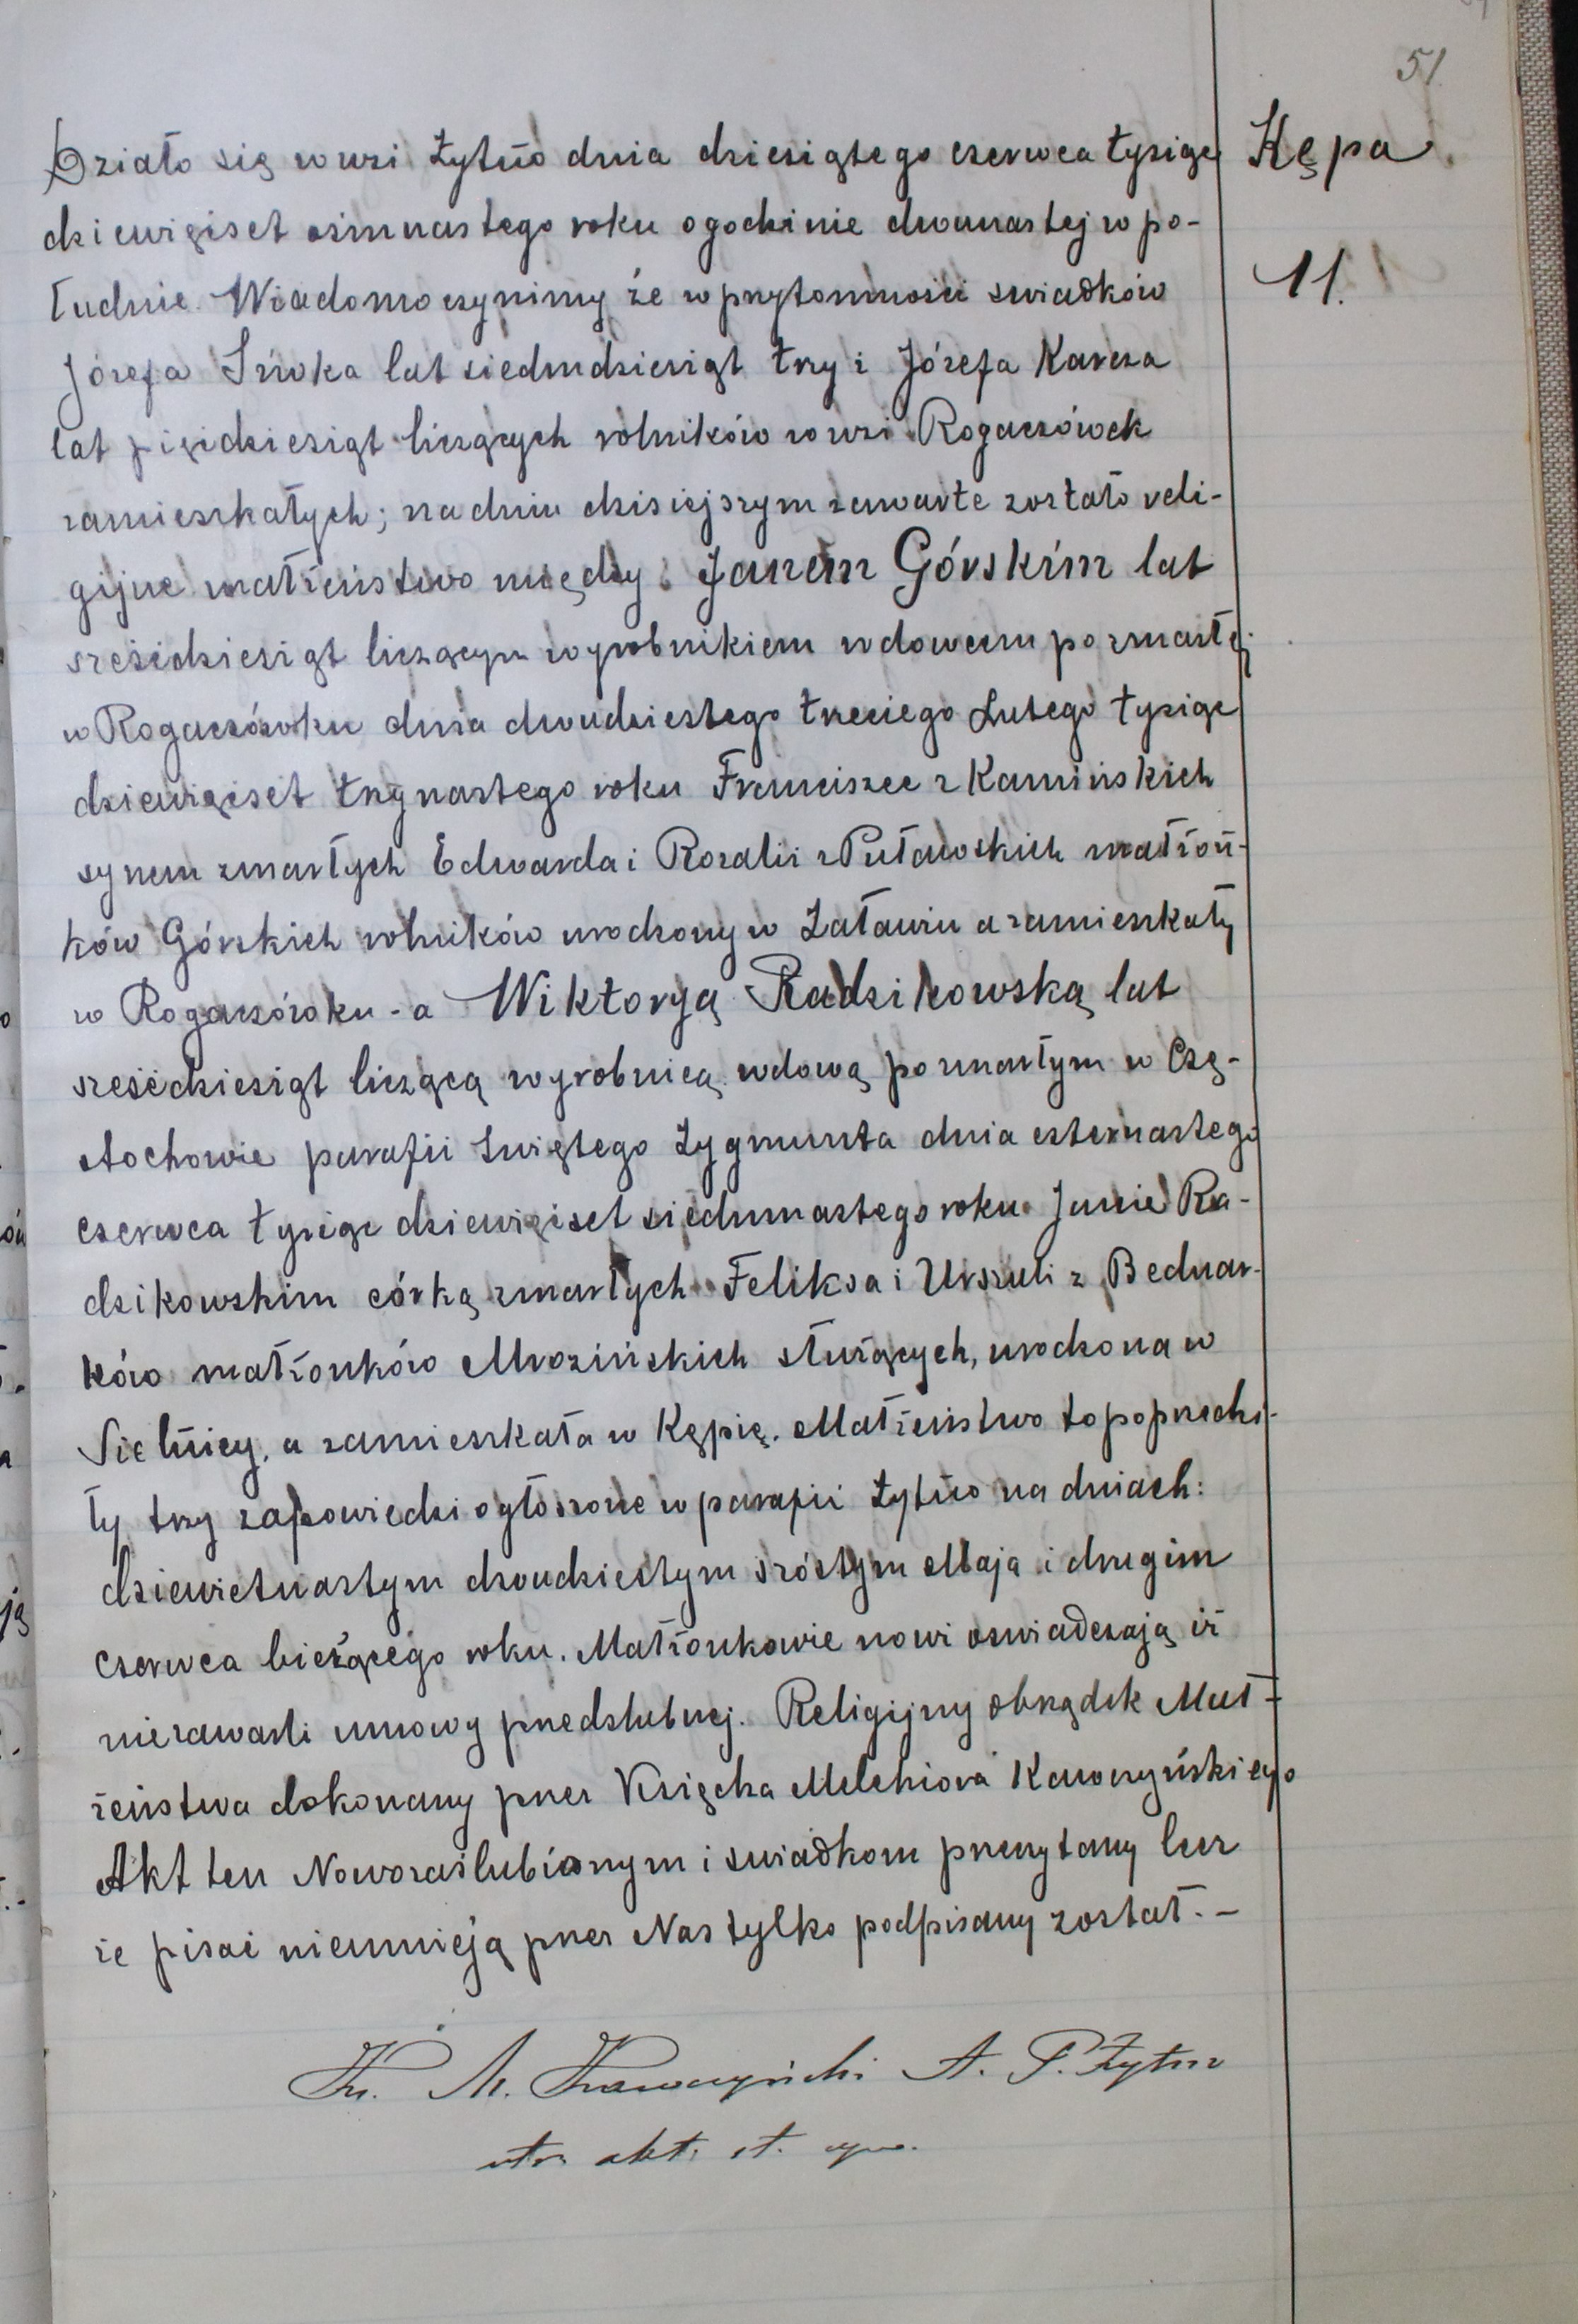 51
Kępa.
11.
Działo się w wsi Żytno dnia dziesiątego czerwca tysiąc
dziewięćset ośmnastego roku o godzinie dwunastej w po-
łudnie. Wiadomo czynimy że w przytomności swiadków
Józefa lat siedmdziesiąt trzy i Józefa Karcza
lat pięćdziesiąt liczących rolników w wsi Rogaczówek
zamieszkałych; na dniu dzisiejszym zawarte zostało reli-
gijne małżeństwo między: Janem Górskim lat
sześćdziesiąt liczącym wyrobnikiem wdowcem po zmarłej
w Rogaczówku dnia dwudziestego trzeciego Lutego tysiąc
dziewięćset trzynastego roku Franciszce z Kamińskich
synem zmarłych Edwarda i Rozalii z Puławskich małżon-
ków Górskich rolników urodzony w Załawiu a zamieszkały
w Rogaczówku - a Wiktoryą Radzikowską lat
sześćdziesiąt liczącą wyrobnicą wdową po zmarłym w Czę-
stochowie parafii Świętego Zygmunta dnia czternastego
czerwca tysiąc dziewięćset siedmnastego roku Janie Ra-
dzikowskim córką zmarłych Feliksa i Urszuli z Bednar-
ków małżonków Mrozińskich służących, urodzona w
Sielnicy, a zamieszkała w Kępię. Małżeństwo to poprzedzi-
ły trzy zapowiedzi ogłoszone w parafii Żytno na dniach:
dziewietnastym dwudziestym szóstym Maja i drugim
czerwca bieżącego roku. Małżonkowie nowi oswiadczają iż
niezawarli umowy przedslubnej. Religijny obrządek Mał-
żeństwa dokonany przez Księdza Melchiora Kawczyńskiego
Akt ten Nowozaślubionym i swiadkom przeczytany lecz
że pisać nieumieją przez Nas tylko podpisany został. -
Ks. M. Kawczyński A. P. Żytno
utr. akt. st. cyw.